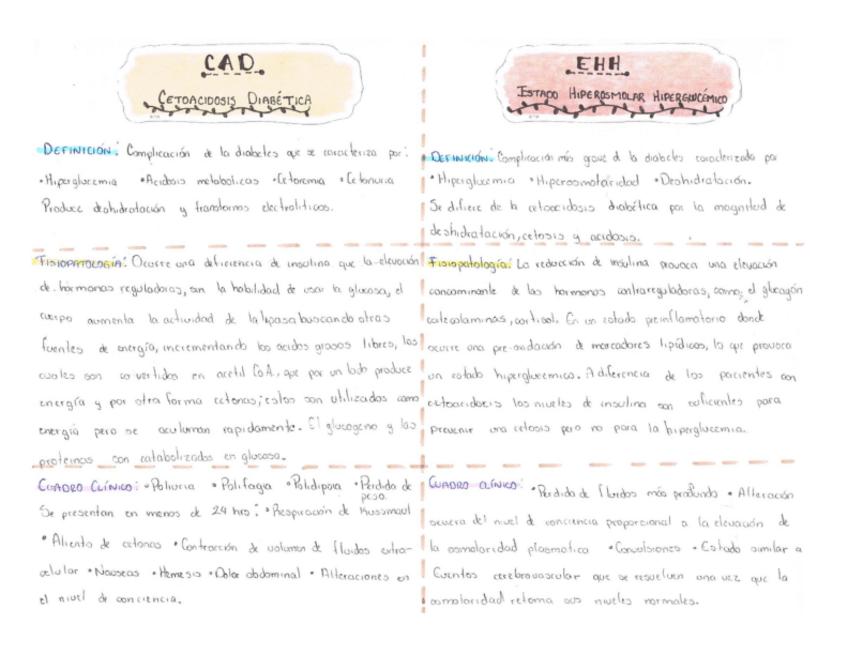 CAD
CETOACIDOSIS DIABÉTICA
DEFINICIÓN: Complicación de la diabetes que se caracteriza por:
•Hiperglucemia •Acidosis metabolicas •Cetonemia •Cetonuria
Produce deshidratación y transtornos electroliticos.
FISIOPATOLOGÍA: Ocurre una deficiencia de insulina que la elevación
de hormonas reguladoras, sin la habilidad de usar la glucosa, el
cuerpo aumenta la actividad de la lipasa buscando otras
fuentes de energía, incrementando los acidos grasos libres, los
cuales son convertidos en acetil CoA, que por un lado produce
energía y por otra forma cetonas; estos son utilizados como
energía pero se acumulan rapidamente. El glucogeno y las
proteinas son catabolizados en glucosa.
CUADRO CLÍNICO: •Poliuria •Polifagia •Polidipsia •Perdida de
peso.
Se presentan en menos de 24 hrs: •Respiración de Kussmaul
•Aliento de cetonas •Contracción de volumen de fluidos extra-
celular •Nauseas •Hemesis •Dolor abdominal •Alteraciones en
el nivel de conciencia.
EHH
ESTADO HIPEROSMOLAR HIPERGLUCÉMICO
DEFINICIÓN: Complicación más grave d la diabetes caracterizada por
•Hiperglucemia •Hiperosmolaridad •Deshidratación.
Se difiere de la cetoacidosis diabética por la magnitud de
deshidratación, cetosis y acidosis.
Fisiopatología: La reducción de insulina provoca una elevación
concominante de las hormonas contrareguladoras, como; el glucagón
catecolaminas, cortisol. Es un estado preinflamatorio donde
ocurre una pre-oxidación de marcadores lipídicos, lo que provoca
un estado hiperglucemico. A diferencia de los pacientes con
cetoacidosis los niveles de insulina son suficientes para
prevenir una cetosis pero no para la hiperglucemia.
CUADRO CLÍNICO: •Perdida de fluidos más profundo •Alteración
severa del nivel de conciencia proporcional a la elevación de
la osmolaridad plasmatica •Convulsiones •Estado similar a
Eventos cerebrovascular que se resuelven una vez que la
osmolaridad retoma sus niveles normales.